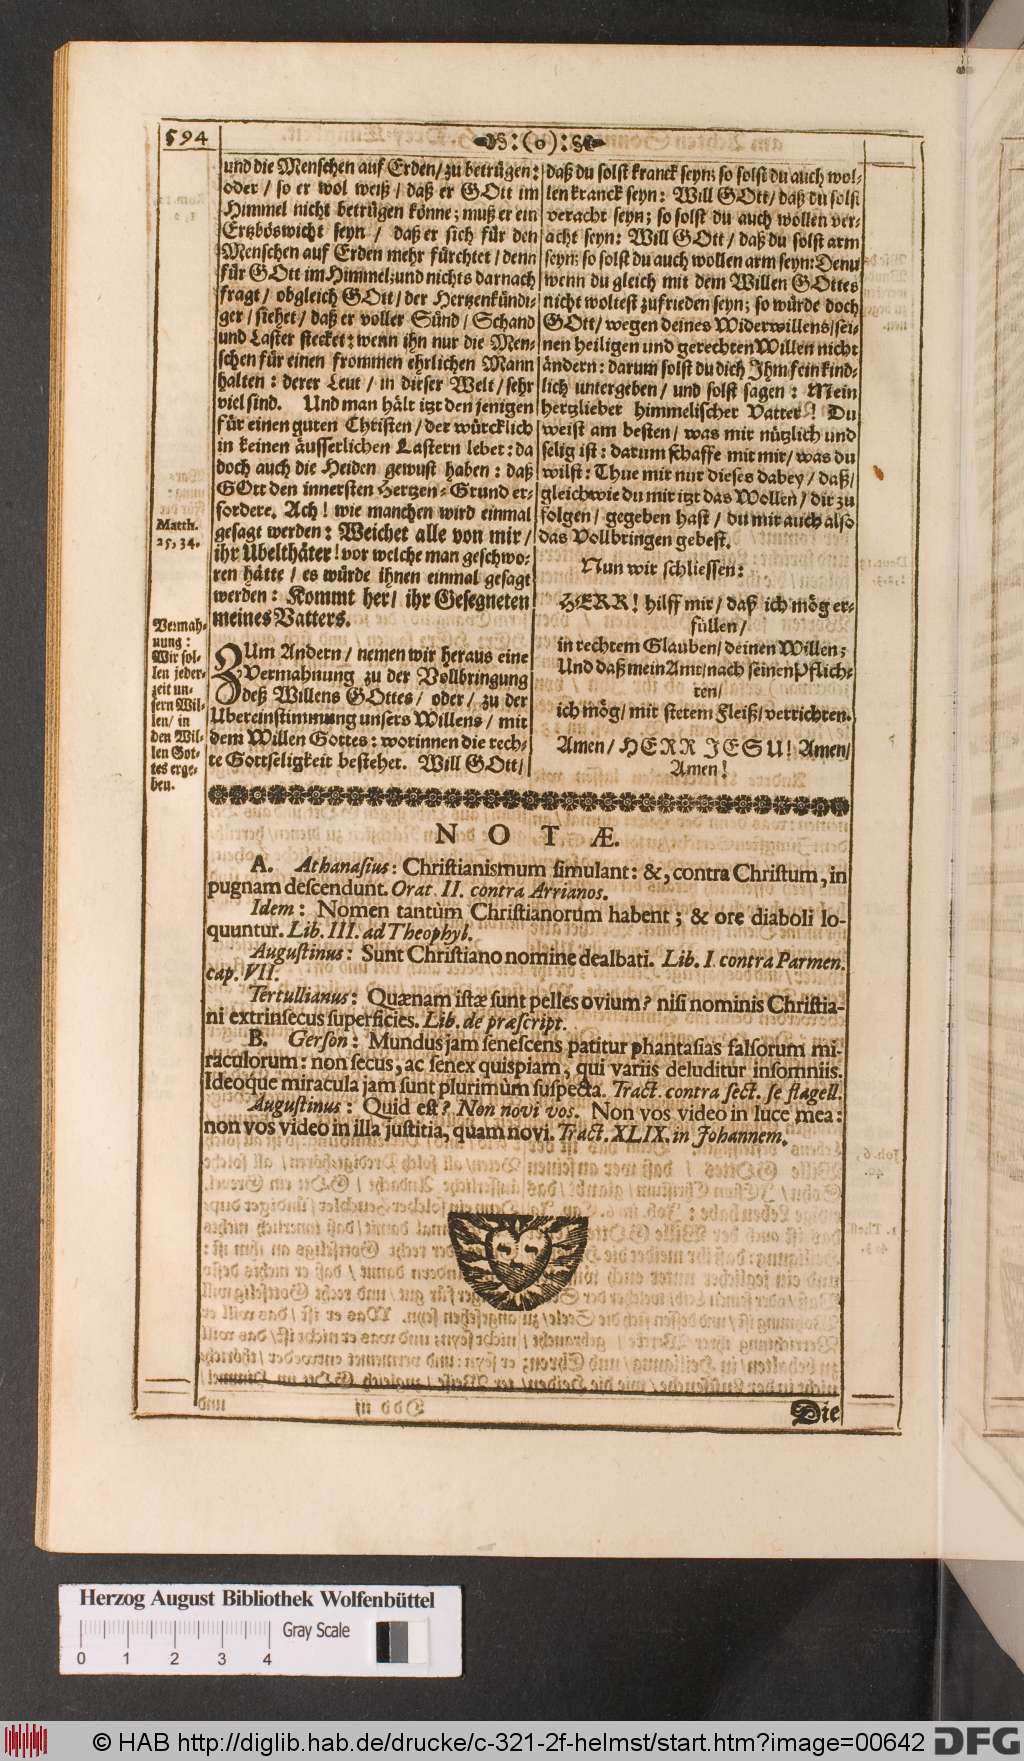 594
§:(o):§
und die Menschen auf Erden/ zu betrügen:
oder/ so er wol weiß/ daß er GOtt im
Himmel nicht betrügen könne; muß er ein
Ertzböswicht seyn/ daß er sich für den
Menschen auf Erden mehr fürchtet/ denn
für GOtt im Himmel; und nichts darnach
fragt/ obgleich GOtt/ der Hertzenkündi-
ger/ siehet/ daß er voller Sünd/ Schand
und Laster stecket: wenn ihn nur die Men-
schen für einen frommen ehrlichen Mann
halten: derer Leut/ in dieser Welt/ sehr
viel sind. Und man hält itzt den jenigen
für einen guten Christen/ der würcklich
in keinen äusserlichen Lastern lebet: da
doch auch die Heiden gewust haben: daß
GOtt den innersten Hertzen-Grund er-
fordere. Ach! wie manchen wird einmal
gesagt werden: Weichet alle von mir/
ihr Ubelthäter! vor welche man geschwo-
ren hätte/ es würde ihnen einmal gesagt
werden: Kommt her/ ihr Gesegneten
meines Vatters.
Matth.
25, 34.
Vermah-
nung:
Wir sol-
len jeder-
zeit un-
sern Wil-
len/ in
den Wil-
len Got-
tes erge-
ben.
ZUm Andern/ nemen wir heraus eine
Vermahnung zu der Vollbringung
deß Willens GOttes/ oder/ zu der
Ubereinstimmung unsers Willens/ mit
dem Willen Gottes: worinnen die rech-
te Gottseligkeit bestehet. Will GOtt/
daß du solst kranck seyn; so solst du auch wol-
len kranck seyn: Will GOtt/ daß du solst
veracht seyn; so solst du auch wollen ver-
acht seyn: Will GOtt/ daß du solst arm
seyn; so solst du auch wollen arm seyn: Denn
wenn du gleich mit dem Willen GOttes
nicht woltest zufrieden seyn; so würde doch
GOtt/ wegen deines Widerwillens/ sei-
nen heiligen und gerechten Willen nicht
ändern: darum solst du dich Ihm fein kind-
lich untergeben/ und solst sagen: Mein
hertzlieber himmelischer Vatter! Du
weist am besten/ was mir nützlich und
selig ist: darum schaffe mit mir/ was du
wilst: Thue mir nur dieses dabey/ daß/
gleichwie du mir itzt das Wollen/ dir zu
folgen/ gegeben hast/ du mir auch also
das Vollbringen gebest.
Nun wir schliessen:
HERR! hilff mir/ daß ich mög er-
füllen/
in rechtem Glauben/ deinen Willen;
Und daß mein Amt/ nach seinen Pflich-
ten/
ich mög/ mit stetem Fleiß/ verrichten.
Amen/ HERR JESU! Amen/
Amen!
NOTÆ.
A. Athanasius: Christianismum simulant: &, contra Christum, in
pugnam descendunt. Orat. II. contra Arrianos.
Idem: Nomen tantùm Christianorum habent; & ore diaboli lo-
quuntur. Lib. III. ad Theophyl.
Augustinus: Sunt Christiano nomine dealbati. Lib. I. contra Parmen.
cap. VII.
Tertullianus: Quænam istæ sunt pelles ovium? nisi nominis Christia-
ni extrinsecus superficies. Lib. de præscript.
B. Gerson: Mundus jam senescens patitur phantasias falsorum mi-
raculorum: non secus, ac senex quispiam, qui variis deluditur insomniis.
Ideoque miracula jam sunt plurimùm suspecta. Tract. contra sect. se flagell.
Augustinus: Quid est? Non novi vos. Non vos video in luce mea:
non vos video in illa justitia, quam novi. Tract. XLIX. in Johannem.
Die
Herzog August Bibliothek Wolfenbüttel
Gray Scale
0 1 2 3 4
© HAB http://diglib.hab.de/drucke/c-321-2f-helmst/start.htm?image=00642
DFG